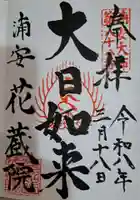 奉拝
令和八年
三月十八日
大日如来
浦安
花蔵院